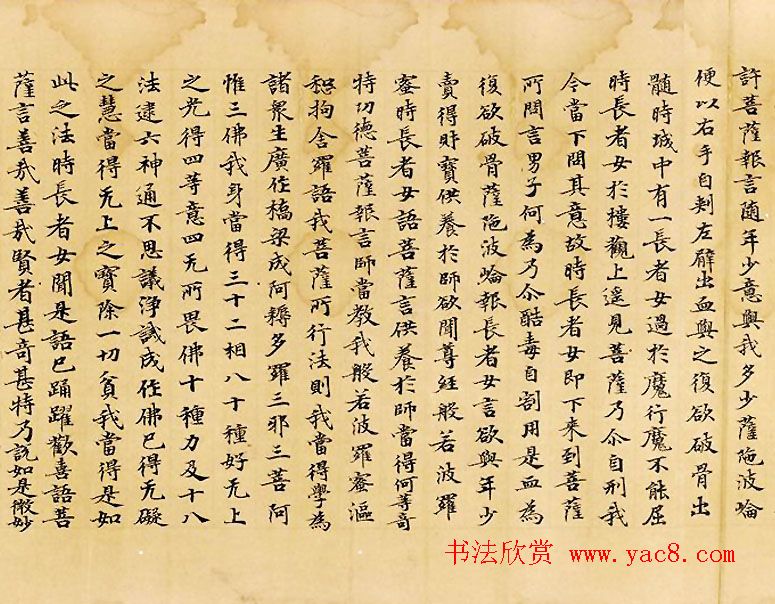 許菩薩報言隨年少意與我多少薩陁波崘
便以右手自刾左臂出血與之復欲破骨出
髓時城中有一長者女過於魔行魔不能屈
時長者女於樓觀上遥見菩薩乃尒自刑我
今當下問其意故時長者女即下來到菩薩
所問言男子何為乃尒酷毒自割用是血為
復欲破骨薩陁波崘報長者女言欲與年少
賣得財寶供養於師欲聞尊經般若波羅
蜜時長者女語菩薩言供養於師當得何等奇
特功德菩薩報言師當教我般若波羅蜜漚
惒拘舍羅語我菩薩所行法則我當得學為
諸衆生廣任橋梁成阿耨多羅三耶三菩阿
惟三佛我身當得三十二相八十種好无上
之光得四等意四无所畏佛十種力及十八
法逮六神通不思議淨誡成任佛已得无礙
之慧當得无上之寶除一切貧我當得是如
此之法時長者女聞是語已踊躍歡喜語菩
薩言善哉善哉賢者甚奇甚特乃說如是微妙
书法欣赏 www.yac8.com